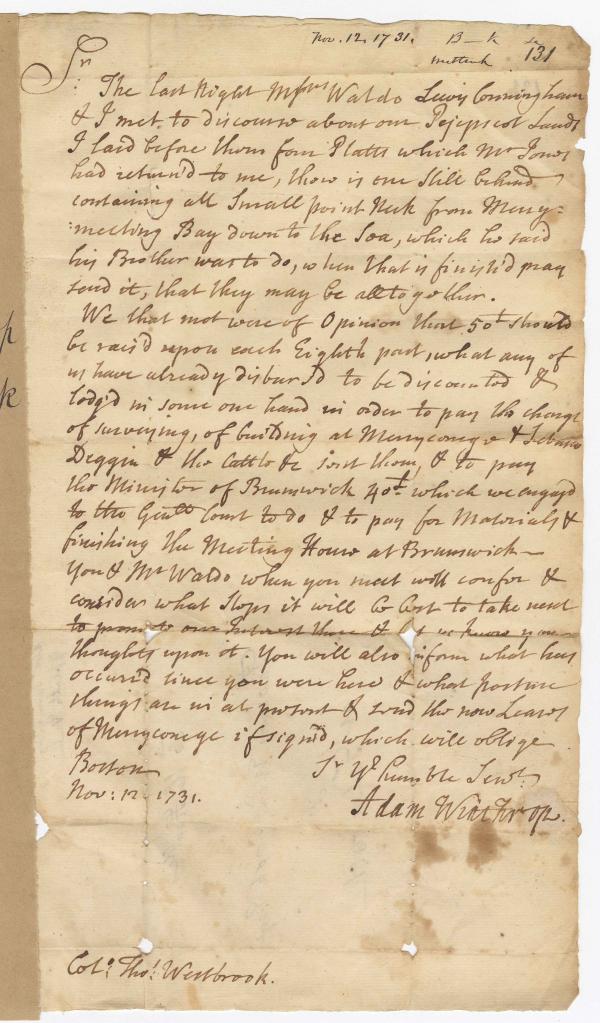 Nov. 12. 1731. B—k
131
Sr
The last Night Messrs Waldo Lewis Cunningham
& I met to discourse about our Pejepscot Lands
I laid before them four Platts which Mr Jones
had return'd to me, there is one Still behind
containing all Small point Neck from Merry=
=meeting Bay down to the Sea, which he said
his Brother was to do, when that is finish'd pray
send it, that they may be altogether.
We that met were of Opinion that 50£ should
be rais'd upon each Eighth part, what any of
us have already disburs'd to be discounted &
lodg'd in some one hand in order to pay the charge
of surveying, of building at Merryconege &
Deggin & the Cattle &c sent them, & to pay
the Minister of Brunswick 40£ which we engag'd
to the Genll Court to do & to pay for Materials &
finishing the Meeting House at Brunswick—
You & Mr Waldo when you meet will confer &
consider what Steps it will be best to take next
to promote our Interest there & let us know your
thoughts upon it. You will also inform what has
occurr'd since you were here & what posture
things are in at present & send the new Leases
of Merryconege if sign'd, which will oblige
Boston Sr Yr humble Servt
Nov: 12. 1731.
Adam Winthrop.
Colo. Tho: Westbrook.